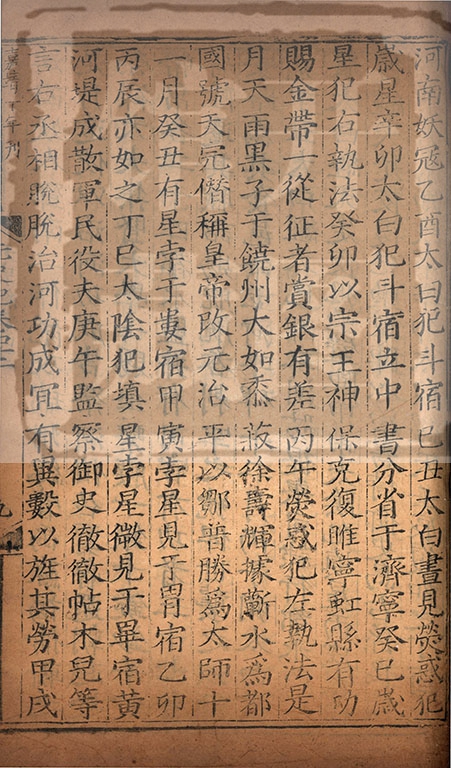 河南妖冦乙酉太白犯斗宿己丑太白晝見熒惑犯
歳星辛卯太白犯斗宿立中書分省于濟寧癸巳歳
星犯右執法癸卯以宗王神保克復睢寧虹縣有功
賜金帶一從征者賞銀有差丙午熒惑犯左執法是
月天雨黒子于饒州大如黍菽徐壽輝據蘄水爲都
國號天完僣稱皇帝改元治平以鄒普勝爲太師十
一月癸丑有星孛于婁宿甲寅孛星見于胃宿乙卯
丙辰亦如之丁巳太陰犯填星孛星微見于畢宿黄
河堤成散軍民役夫庚午監察御史徹徹帖木兒等
言右丞相脫脫治河功成冝有異數以旌其勞甲戌
九